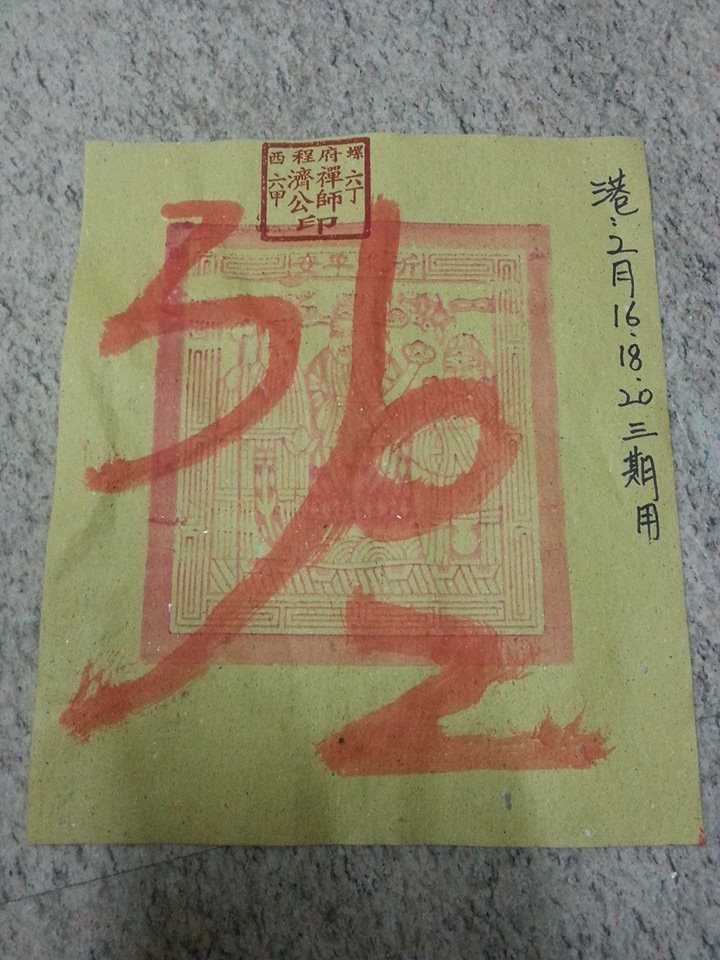 西程府螺
六甲濟公禪師六丁
印
祈求平安
港:2月16.18.20三期用